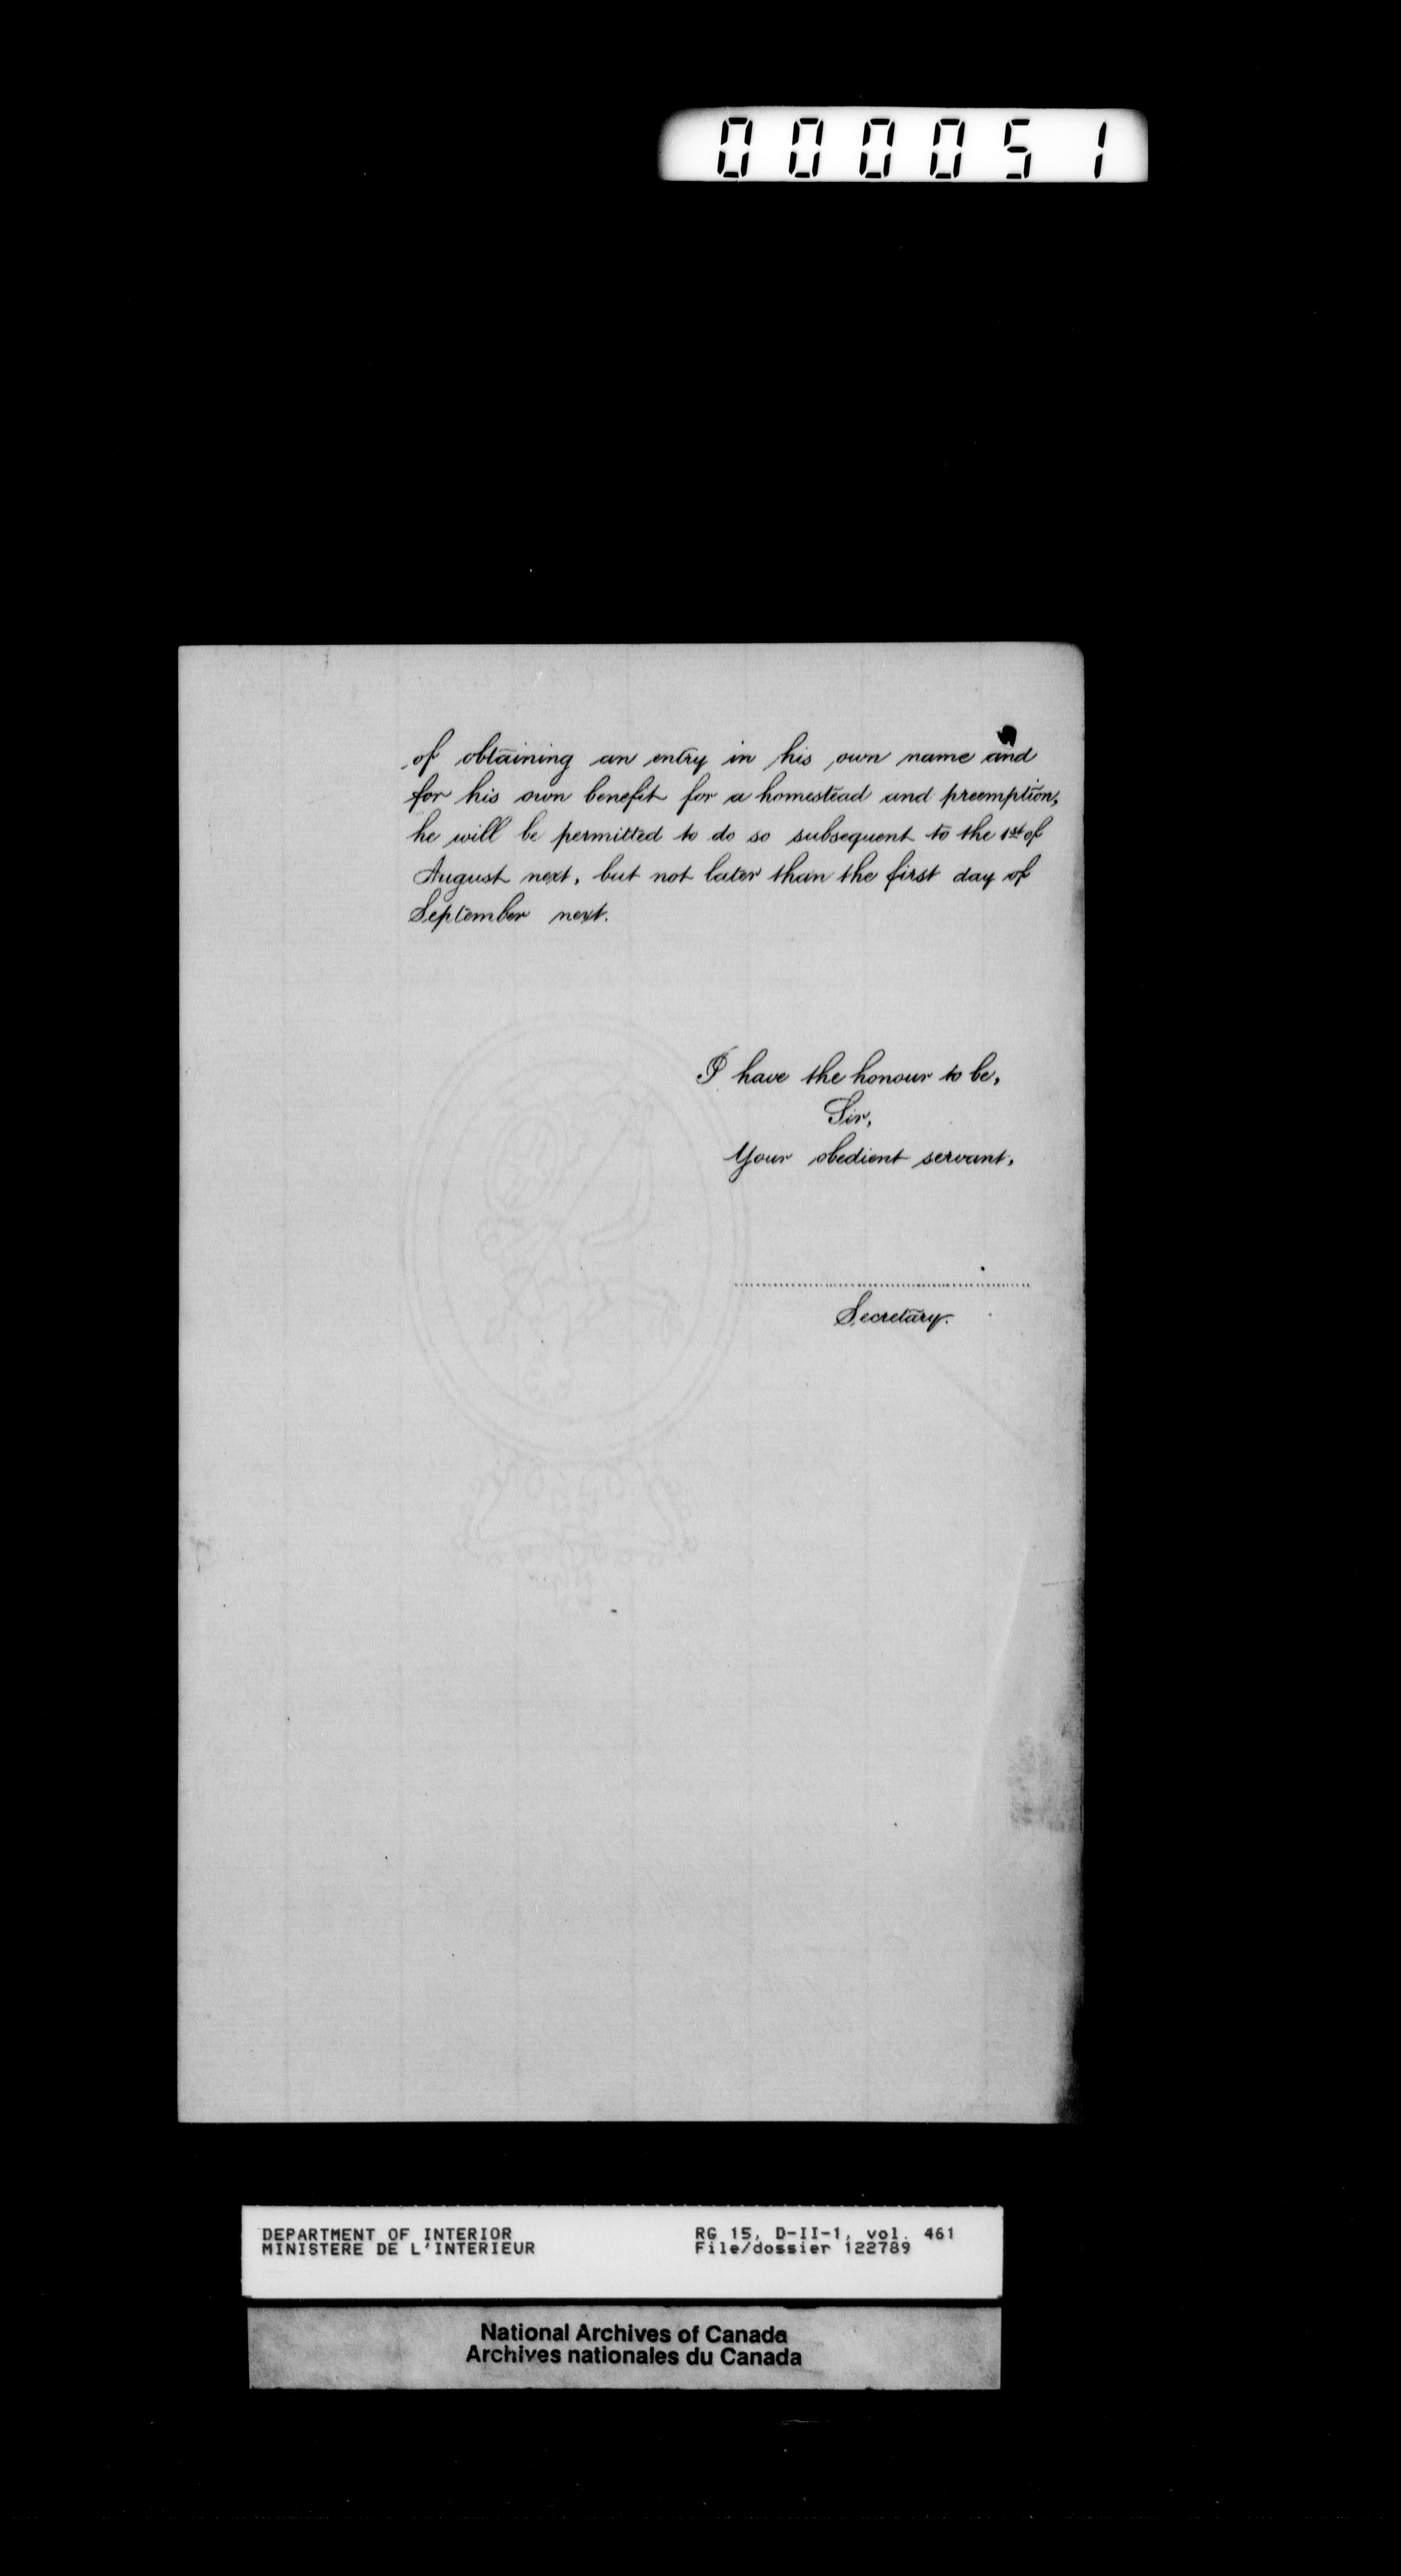 000051
of obtaining an entry in his own name and
for his own benefit for a homestead and preemption,
he will be permitted to do so subsequent to the 1st of
August next, but not later than the first day of
September next.
I have the honour to be,
Sir,
Your obedient servant,
Secretary.
DEPARTMENT OF INTERIOR
MINISTERE DE L'INTERIEUR
RG 15, D-II-1, vol. 461
File/dossier 122789
National Archives of Canada
Archives nationales du Canada